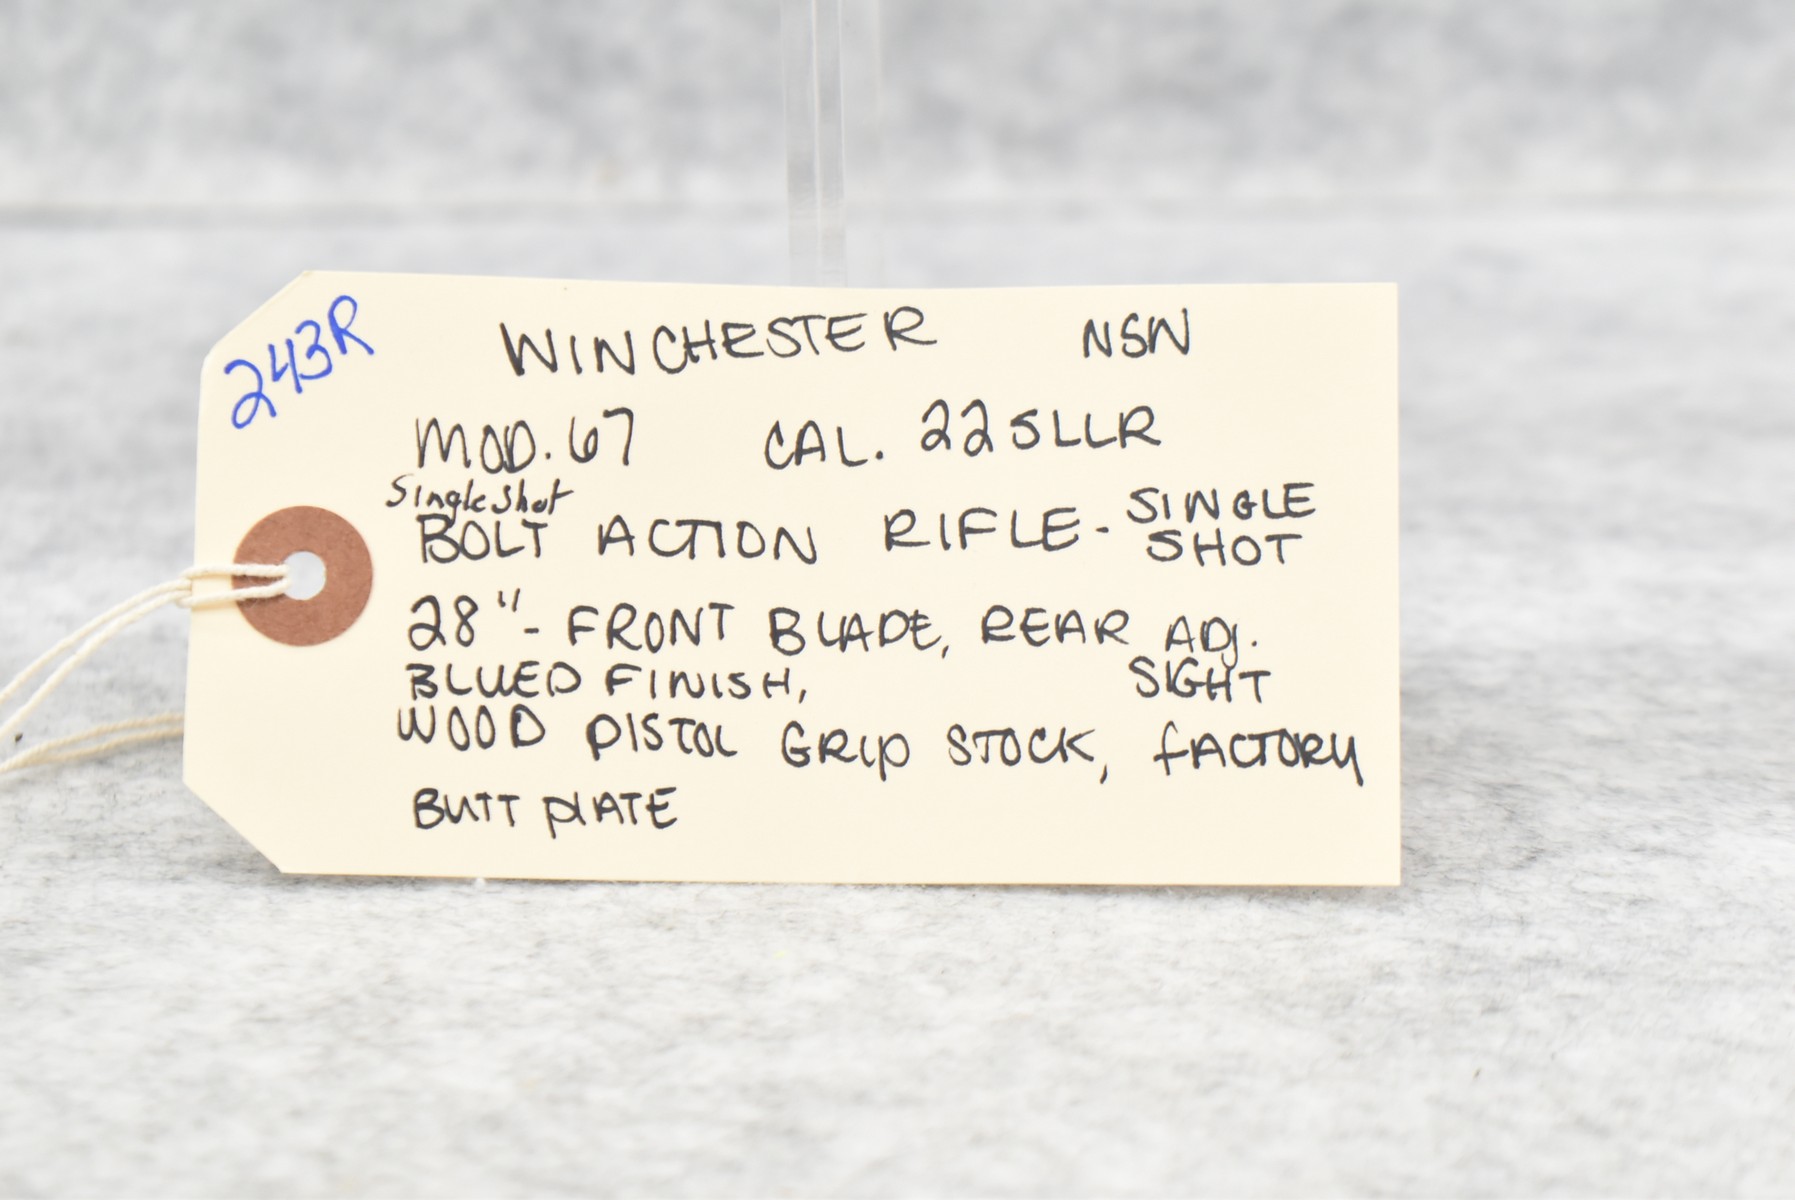 243R
WINCHESTER NSN
MOD. 67 CAL. 22SLLR
Single Shot
BOLT ACTION RIFLE - SINGLE
SHOT
28" - FRONT BLADE, REAR ADJ.
BLUED FINISH, SIGHT
WOOD PISTOL GRIP STOCK, FACTORY
BUTT PLATE